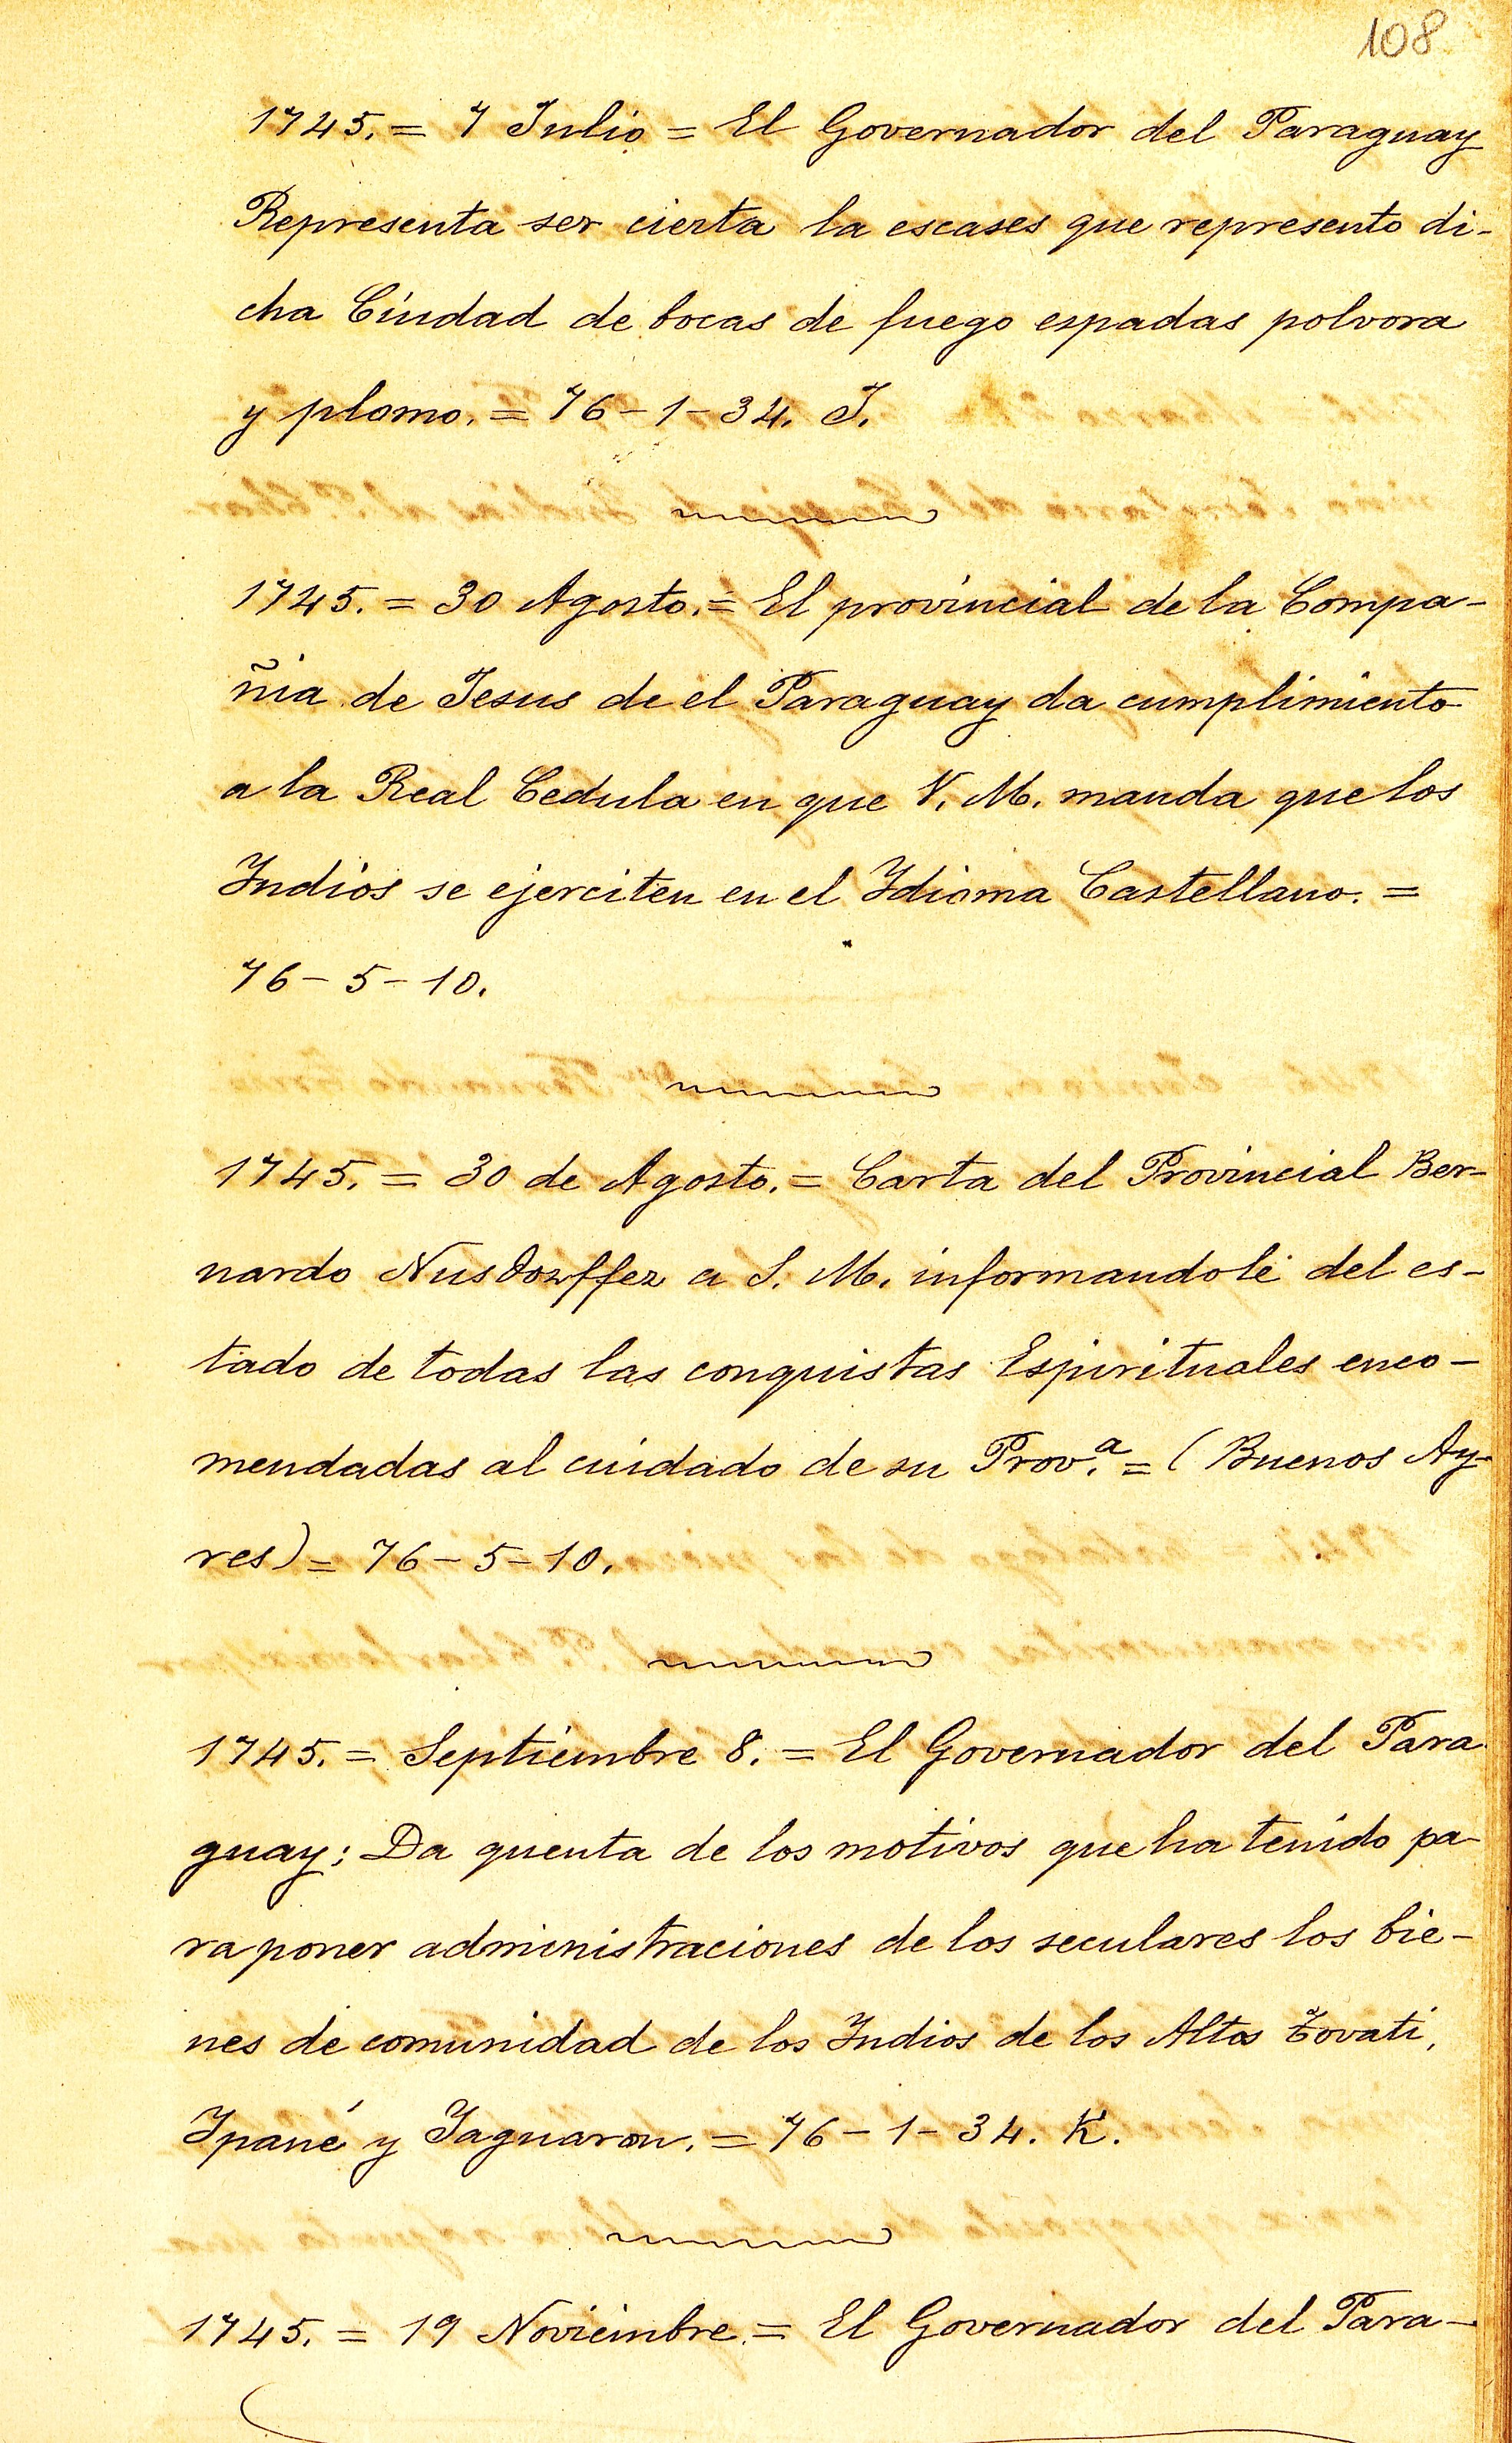 108
1745. = 7 Julio = El Governador del Paraguay
Representa ser cierta la escases que represento di-
cha Ciudad de bocas de fuego espadas polvora
y plomo. = 76-1-34. J.
1745. = 30 Agosto. = El provincial de la Compa-
ñia de Jesus de el Paraguay da cumplimiento
a la Real Cedula en que V. M. manda que los
Indios se ejerciten en el Idioma Castellano. =
76-5-10.
1745. = 30 de Agosto. = Carta del Provincial Ber-
nardo Nusdorffer a S. M. informandole del es-
tado de todas las conquistas Espirituales enco-
mendadas al cuidado de su Prov.ª = (Buenos Ay-
res) = 76-5-10.
1745. = Septiembre 8. = El Governador del Para
guay: Da quenta de los motivos que ha tenido pa-
ra poner administraciones de los seculares los bie-
nes de comunidad de los Indios de los Altos Tovati,
Ipané y Jaguaron. = 76-1-34. K.
1745. = 19 Noviembre. = El Governador del Para-